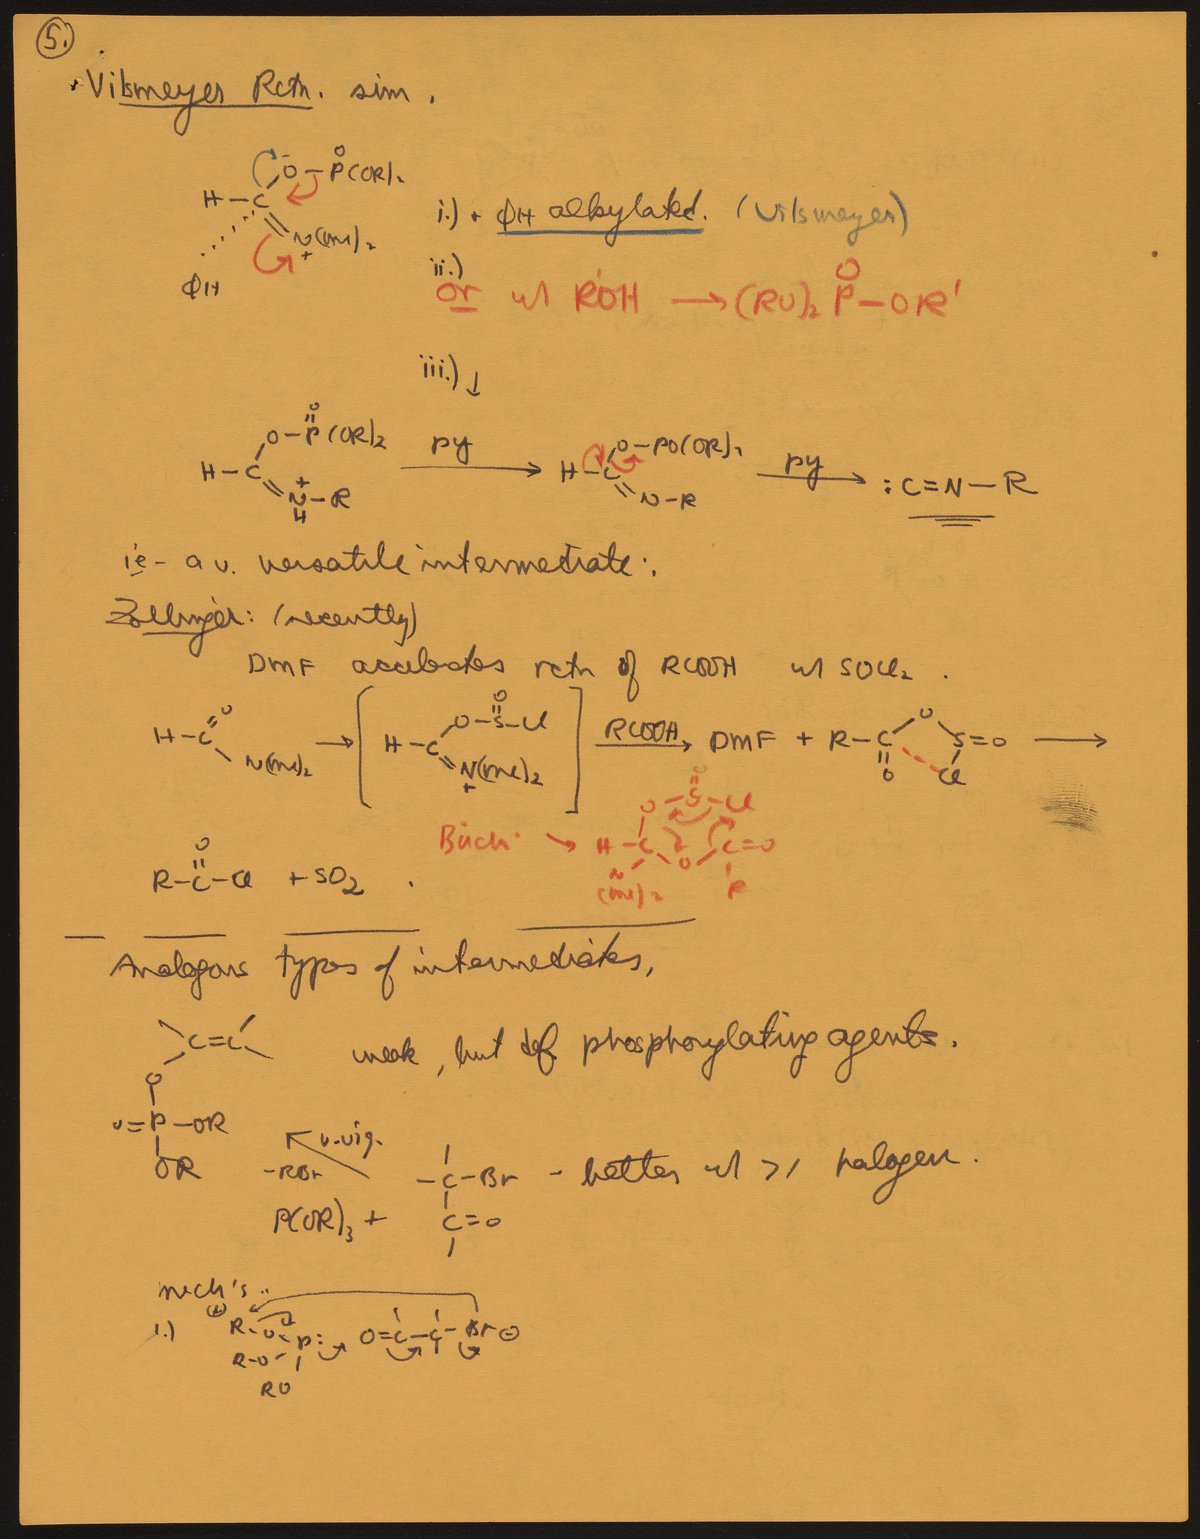 5.
Vilsmeyer Rctn. sim.
O
O – P(OR)2
H – C
N(me)2
+
ΦH
i.) + ΦH alkylated. (Vilsmeyer)
ii.)
or w/ R'OH → (RO)2 P – OR'
O
iii.) ↓
O
O – P(OR)2
H – C
+
N – R
H
py →
O – PO(OR)2
H – C
N – R
py → :C=N – R
ie – a v. versatile intermediate.
Zollinger: (recently)
DMF accelerates rctn of RCOOH w/ SOCl2.
O
H – C
N(me)2
→
O
O – S – Cl
H – C
N(me)2
+
RCOOH → DMF + R – C
O
O
S=O
Cl
→
Büchi → H – C
O – S – Cl
O
O
C=O
R
N
(me)2
O
R – C – Cl + SO2.
Analogous types of intermediates,
C=C
O
O=P – OR
OR
weak, but def. phosphorylating agents.
v. vig.
–RBr
P(OR)3 +
– C – Br
C=O
– better w/ >1 halogen.
mech's..
1.)
(+)
R – O – P:
R – O
RO
O=C – C – Br ⊖